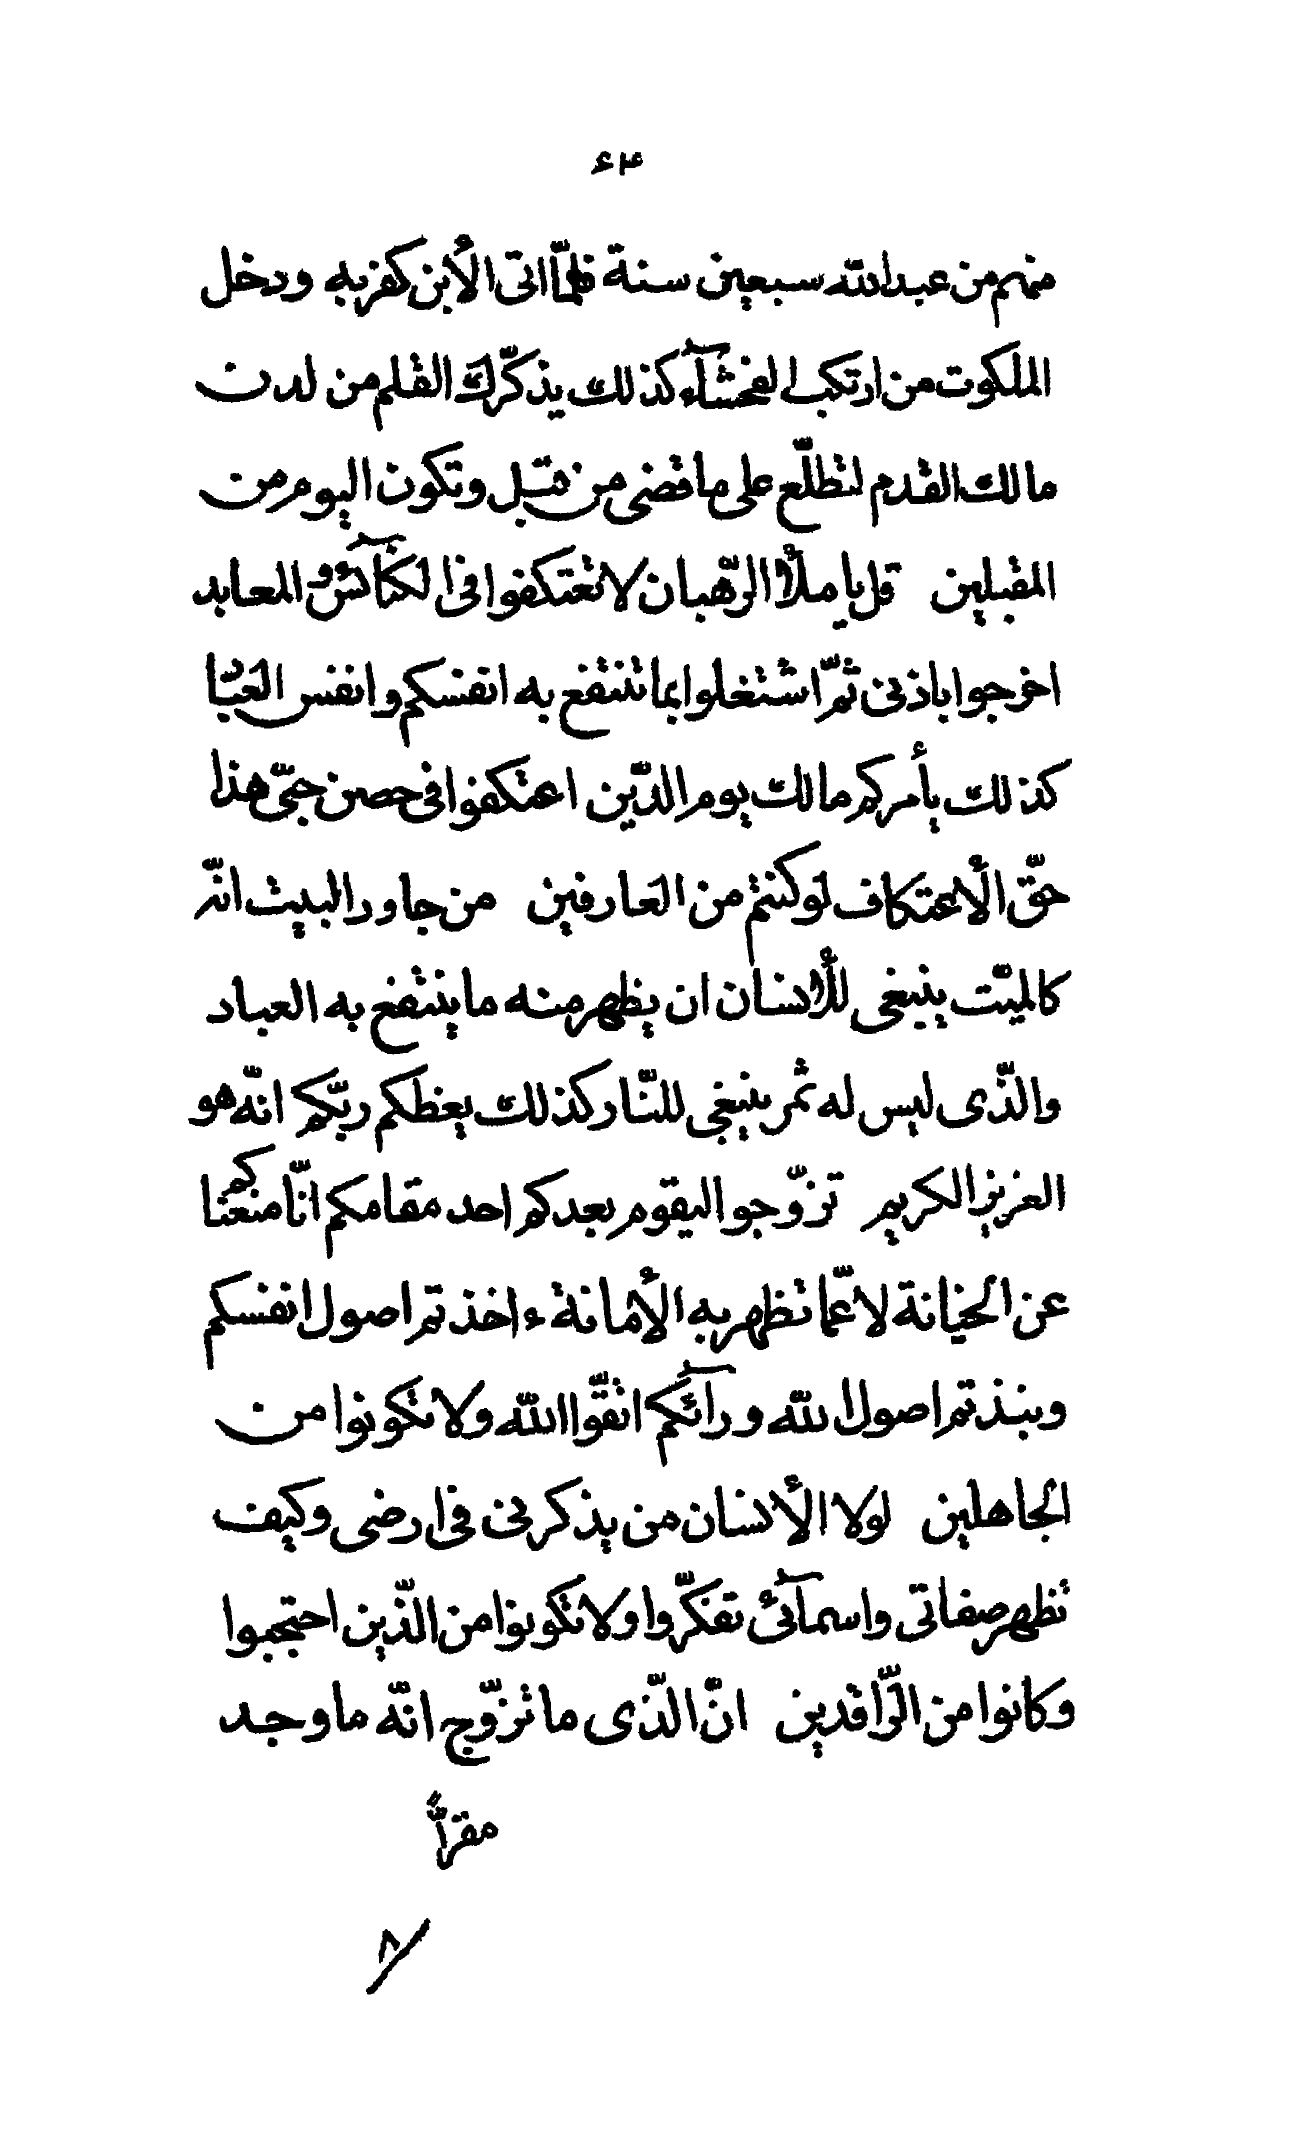 ۶۴
منهم من عبد الله سبعین سنة فلمّا اتی الأبن کفر به ودخل
الملکوت من ارتکب الفحشآء کذلك یذکّرك القلم من لدن
مالك القدم لتطّلع علی ما قضی من قبل وتکون الیوم من
المقبلین قل یا ملأ الرّهبان لا تعتکفوا فی الکنآئس والمعابد
اخرجوا باذنی ثمّ اشتغلوا بما تنتفع به انفسکم وانفس العبّا
کذلك یأمرکم مالك یوم الدّین اعتکفوا فی حصن حبّی هذا
حقّ الأعتکاف لو کنتم من العارفین من جاور البیت انّه
کالمیّت ینبغی للأنسان ان یظهر منه ما ینتفع به العباد
والّذی لیس له ثمر ینبغی للنّار کذلك یعظکم ربّکم انّه هو
العزیز الکریم تزوّجوا لیقوم بعدکم احد مقامکم انّا منعناکم
عن الخیانة لا عمّا تظهر به الأمانة ءاخذتم اصول انفسکم
ونبذتم اصول الله ورآئکم اتّقوا الله ولا تکونوا من
الجاهلین لولا الأنسان من یذکرنی فی ارضی وکیف
تظهر صفاتی واسمآئی تفکّروا ولا تکونوا من الّذین احتجبوا
وکانوا من الرّاقدین انّ الّذی ما تزوّج انّه ما وجد
مقرّاً
۸